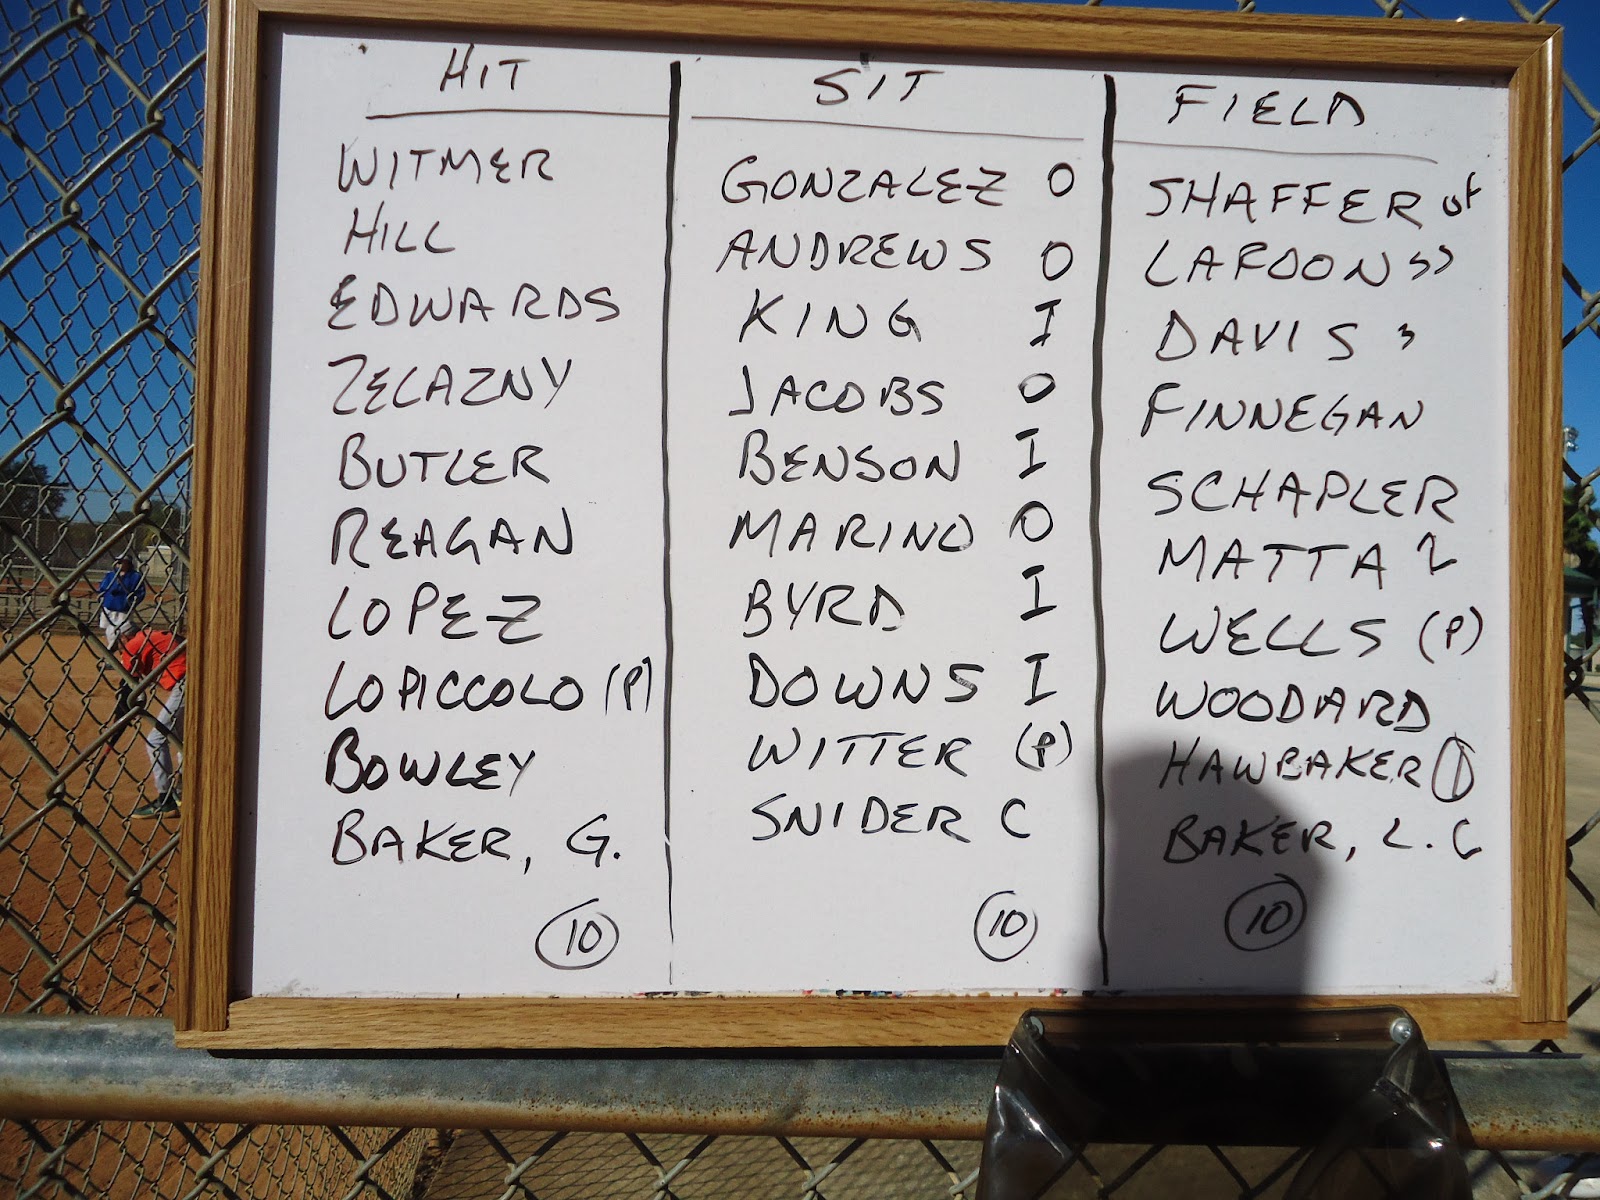 HIT
WITMER
HILL
EDWARDS
ZELAZNY
BUTLER
REAGAN
LOPEZ
LOPICCOLO (P)
BOWLEY
BAKER, G.
10
SIT
GONZALEZ O
ANDREWS O
KING I
JACOBS O
BENSON I
MARINO O
BYRD I
DOWNS I
WITTER (P)
SNIDER C
10
FIELD
SHAFFER
LAFOON
DAVIS
FINNEGAN
SCHAPLER
MATTA 2
WELLS (P)
WOODARD
HAWBAKER
BAKER, L. C
10